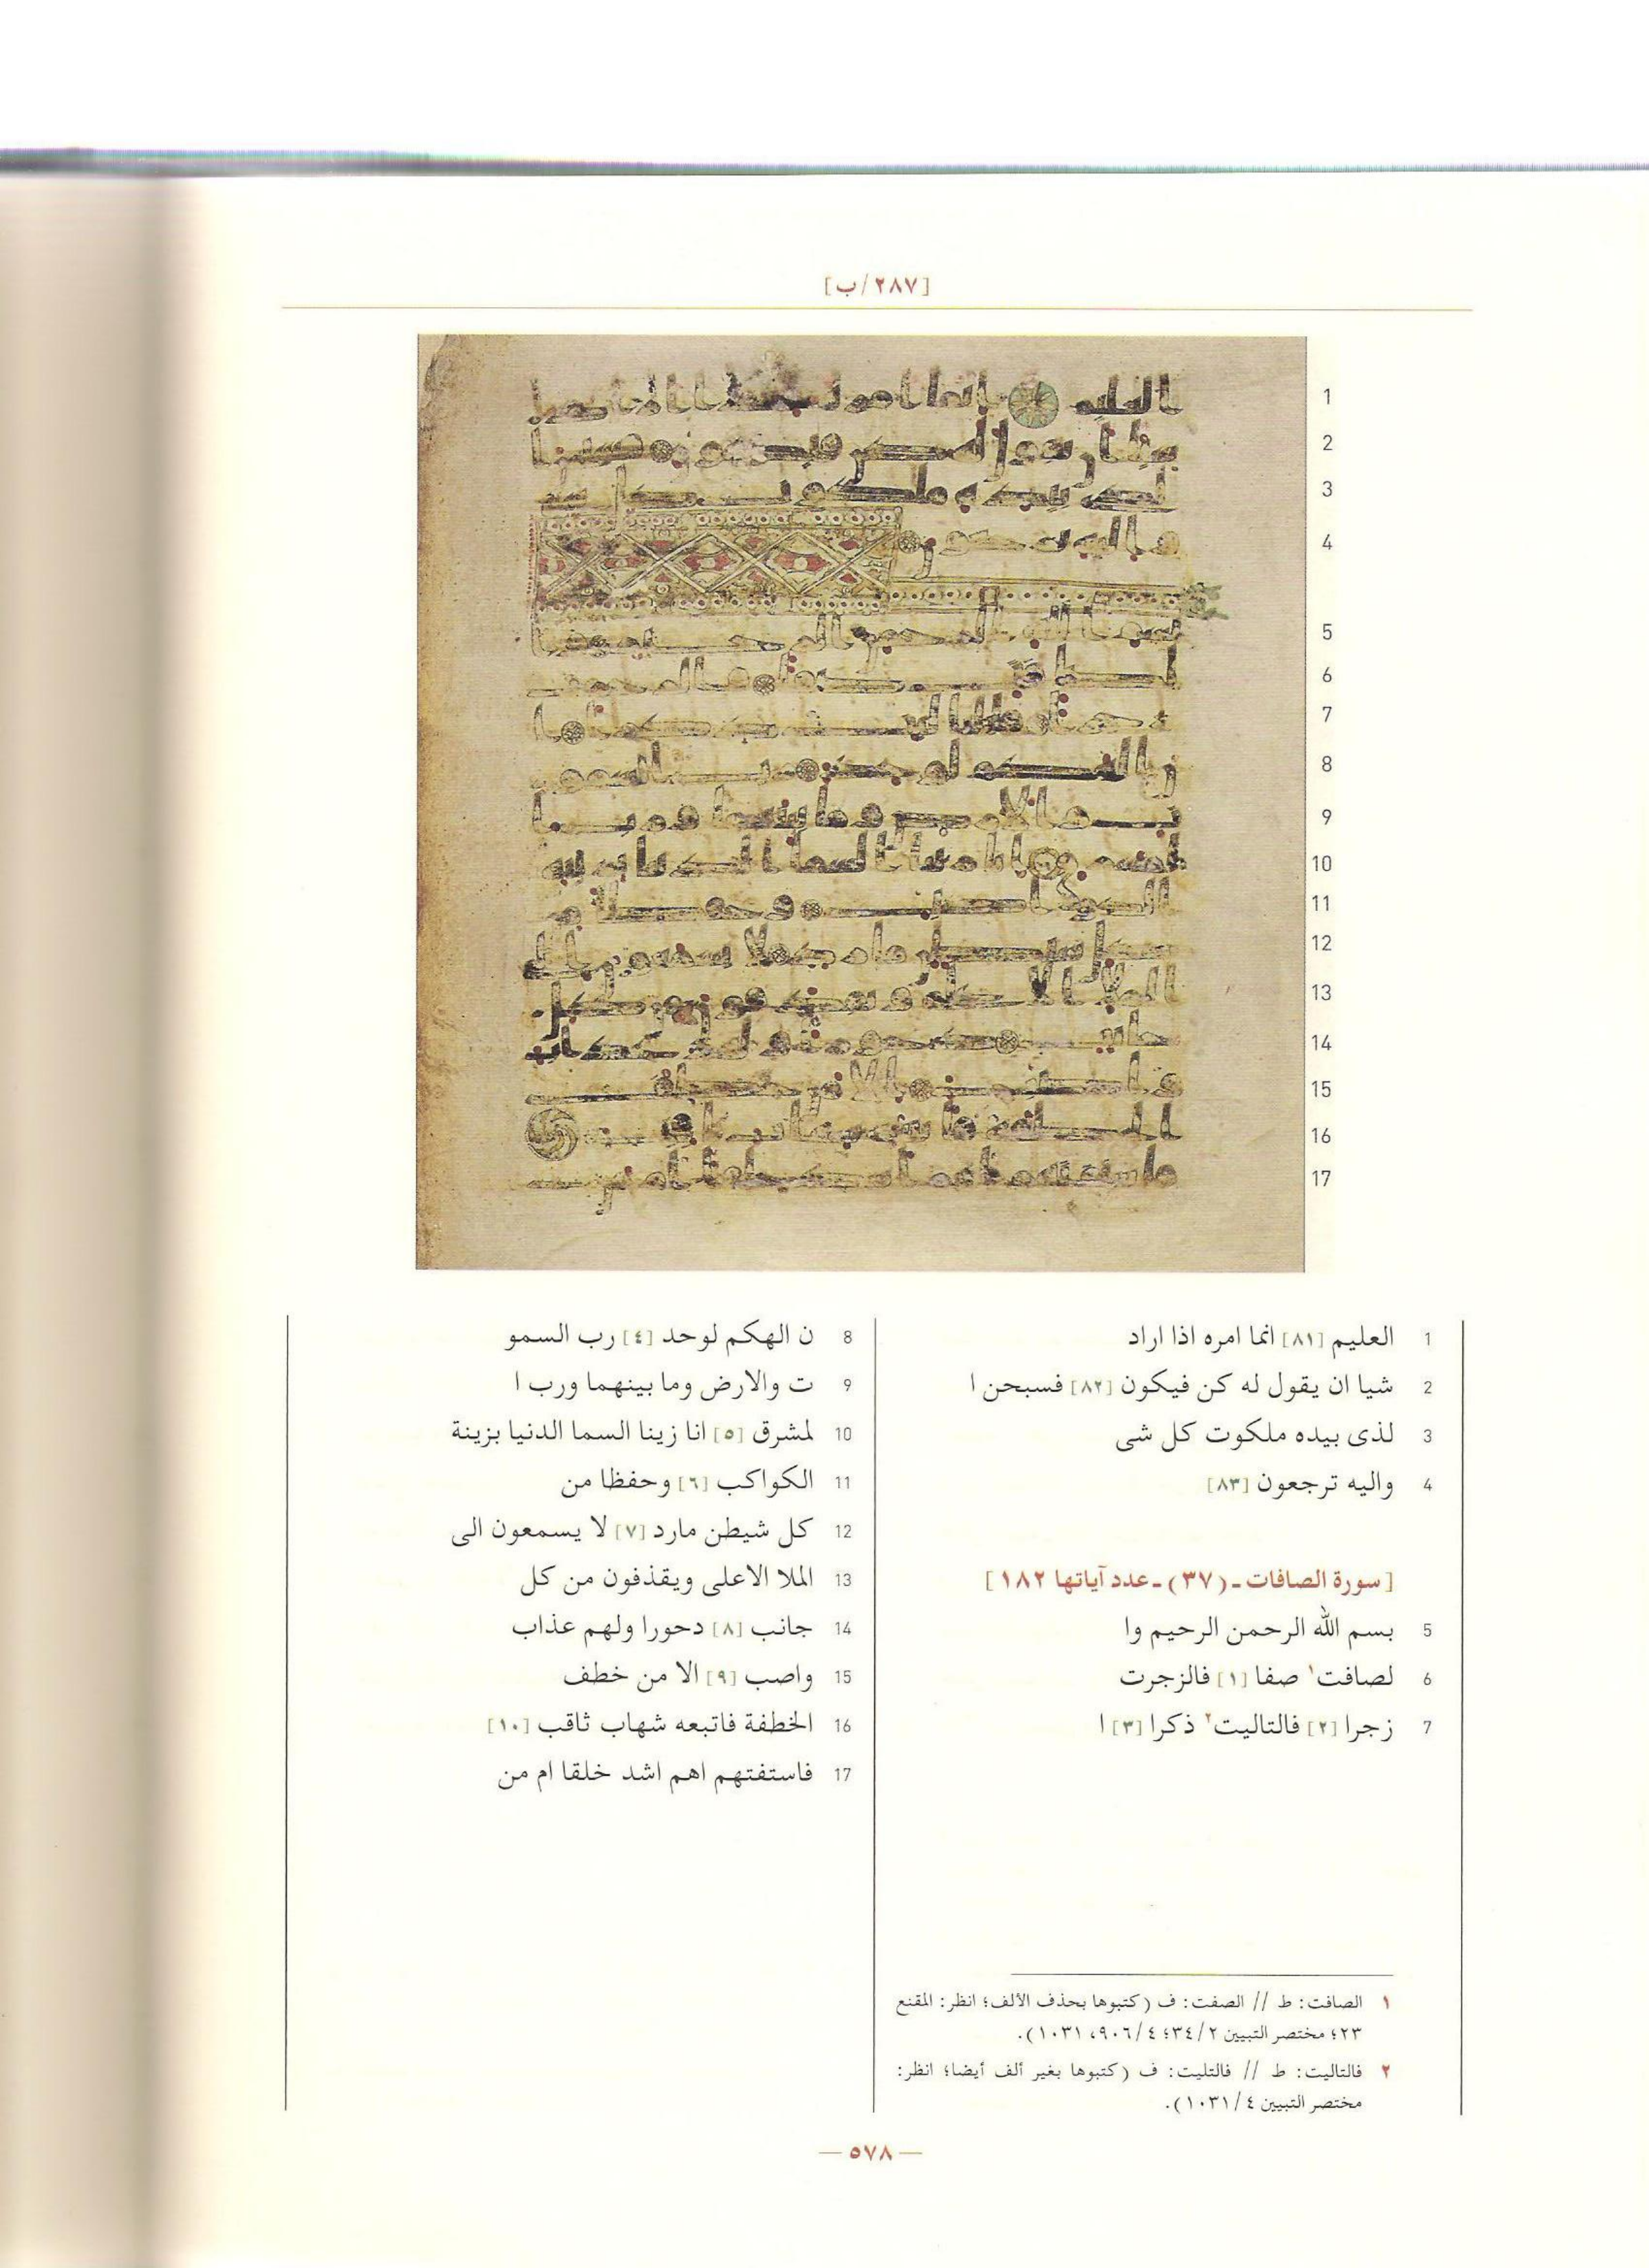 [٢٨٧/ب]
1 العليم [٨١] انما امره اذا اراد
2 شيا ان يقول له كن فيكون [٨٢] فسبحن ا
3 لذى بيده ملكوت كل شى
4 واليه ترجعون [٨٣]
[سورة الصافات ـ (٣٧) ـ عدد آياتها ١٨٢]
5 بسم الله الرحمن الرحيم وا
6 لصافت١ صفا [١] فالزجرت
7 زجرا [٢] فالتاليت٢ ذكرا [٣] ا
8 ن الهكم لوحد [٤] رب السمو
9 ت والارض وما بينهما ورب ا
10 لمشرق [٥] انا زينا السما الدنيا بزينة
11 الكواكب [٦] وحفظا من
12 كل شيطن مارد [٧] لا يسمعون الى
13 الملا الاعلى ويقذفون من كل
14 جانب [٨] دحورا ولهم عذاب
15 واصب [٩] الا من خطف
16 الخطفة فاتبعه شهاب ثاقب [١٠]
17 فاستفتهم اهم اشد خلقا ام من
١ الصافت: ط // الصفت: ف (كتبوها بحذف الألف؛ انظر: المقنع
٢٣؛ مختصر التبيين ٣٤/٢؛ ٩٠٦/٤، ١٠٣١).
٢ فالتاليت: ط // فالتليت: ف (كتبوها بغير ألف أيضا؛ انظر:
مختصر التبيين ١٠٣١/٤).
— ٥٧٨ —